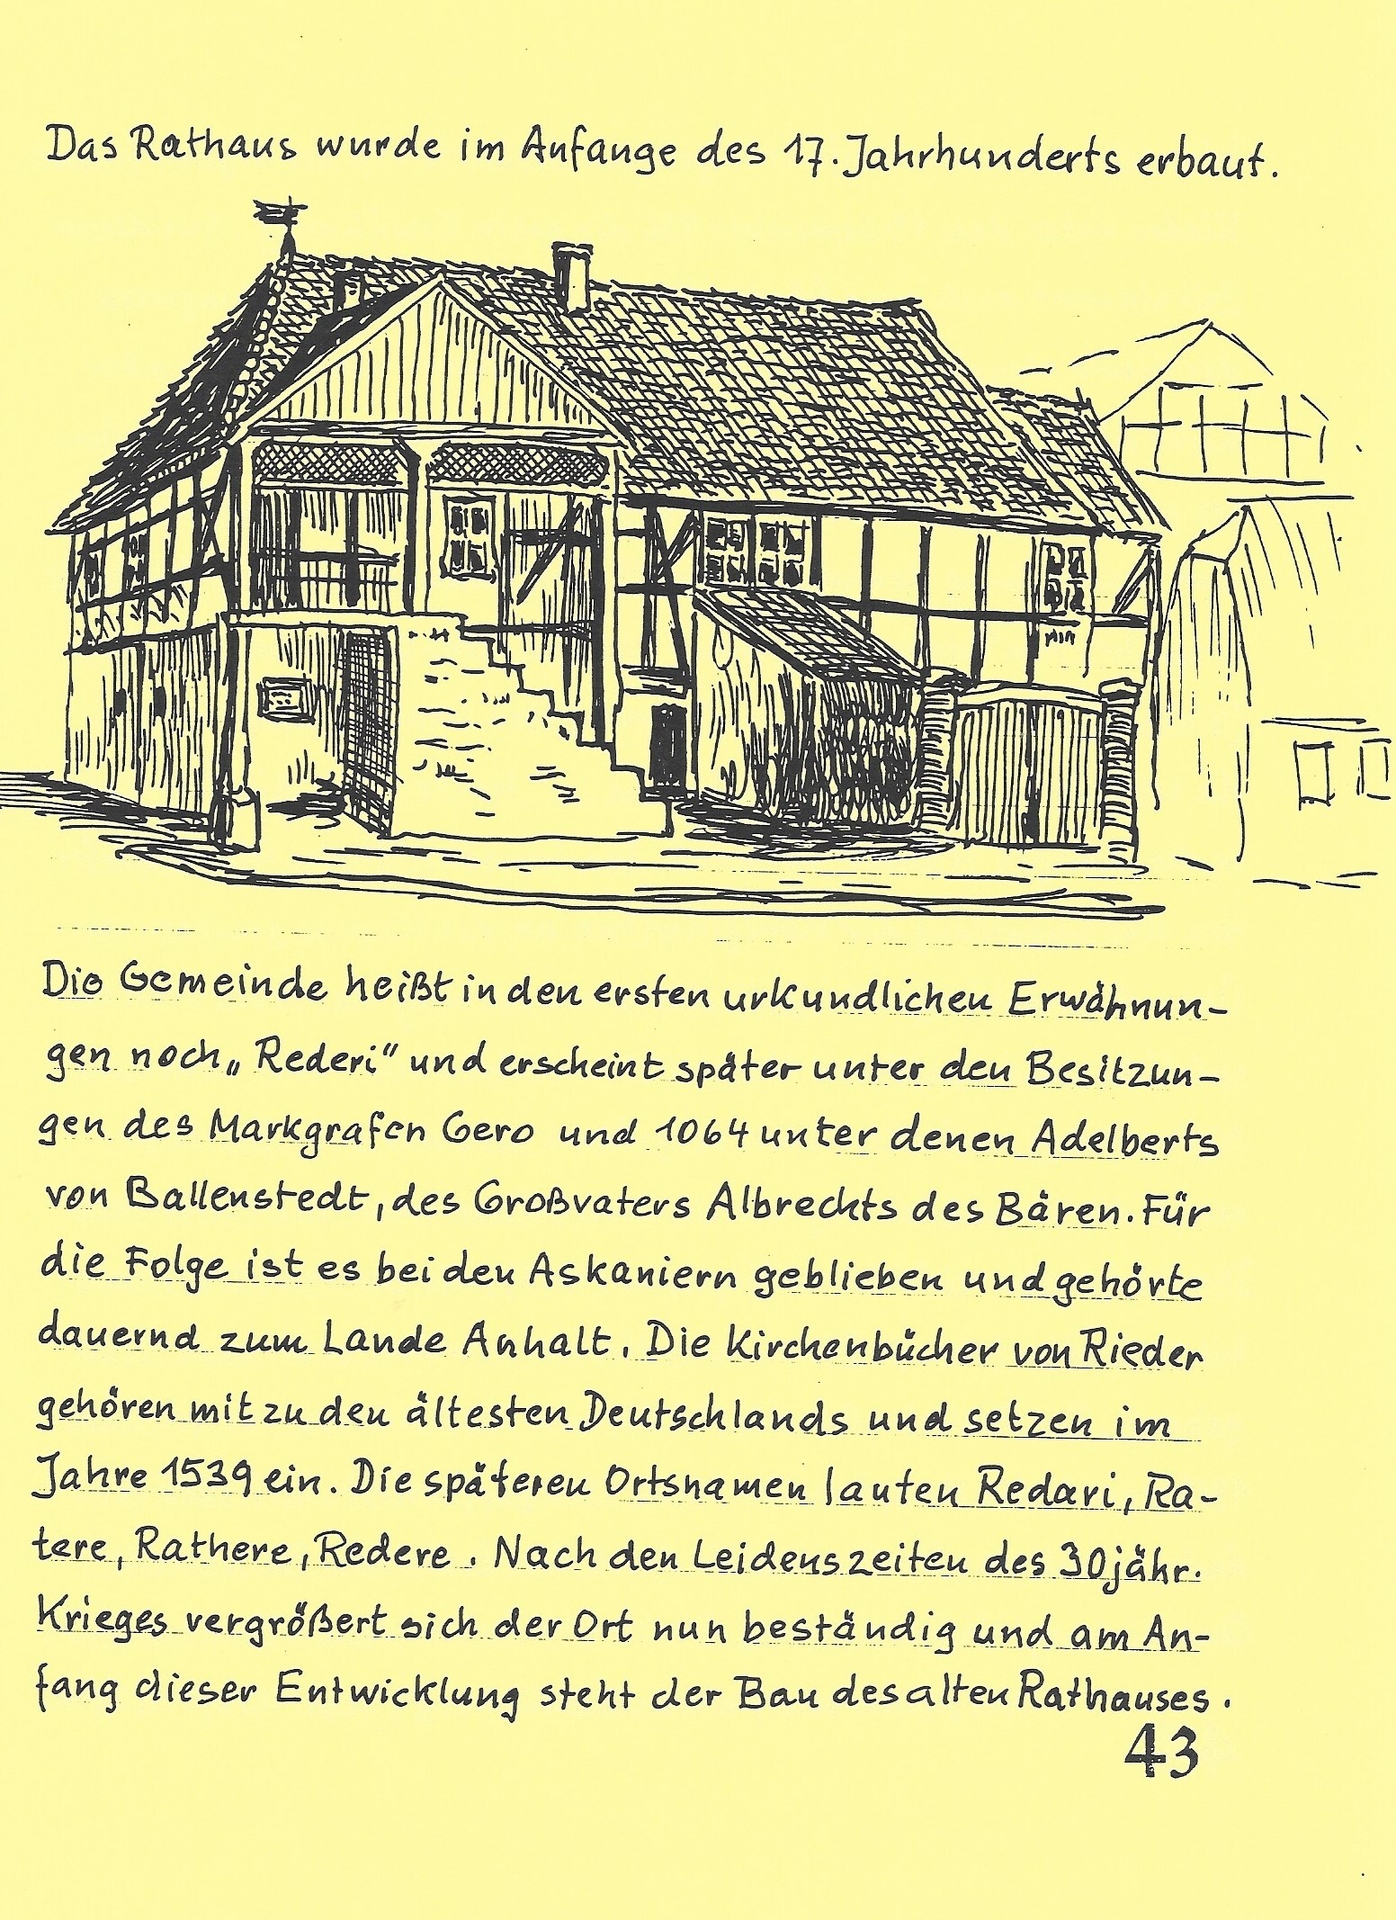 Das Rathaus wurde im Anfange des 17. Jahrhunderts erbaut.
Die Gemeinde heißt in den ersten urkundlichen Erwähnun-
gen noch „Rederi“ und erscheint später unter den Besitzun-
gen des Markgrafen Gero und 1064 unter denen Adelberts
von Ballenstedt, des Großvaters Albrechts des Bären. Für
die Folge ist es bei den Askaniern geblieben und gehörte
dauernd zum Lande Anhalt. Die Kirchenbücher von Rieder
gehören mit zu den ältesten Deutschlands und setzen im
Jahre 1539 ein. Die späteren Ortsnamen lauten Redari, Ra-
tere, Rathere, Redere. Nach den Leidenszeiten des 30jähr.
Krieges vergrößert sich der Ort nun beständig und am An-
fang dieser Entwicklung steht der Bau des alten Rathauses.
43